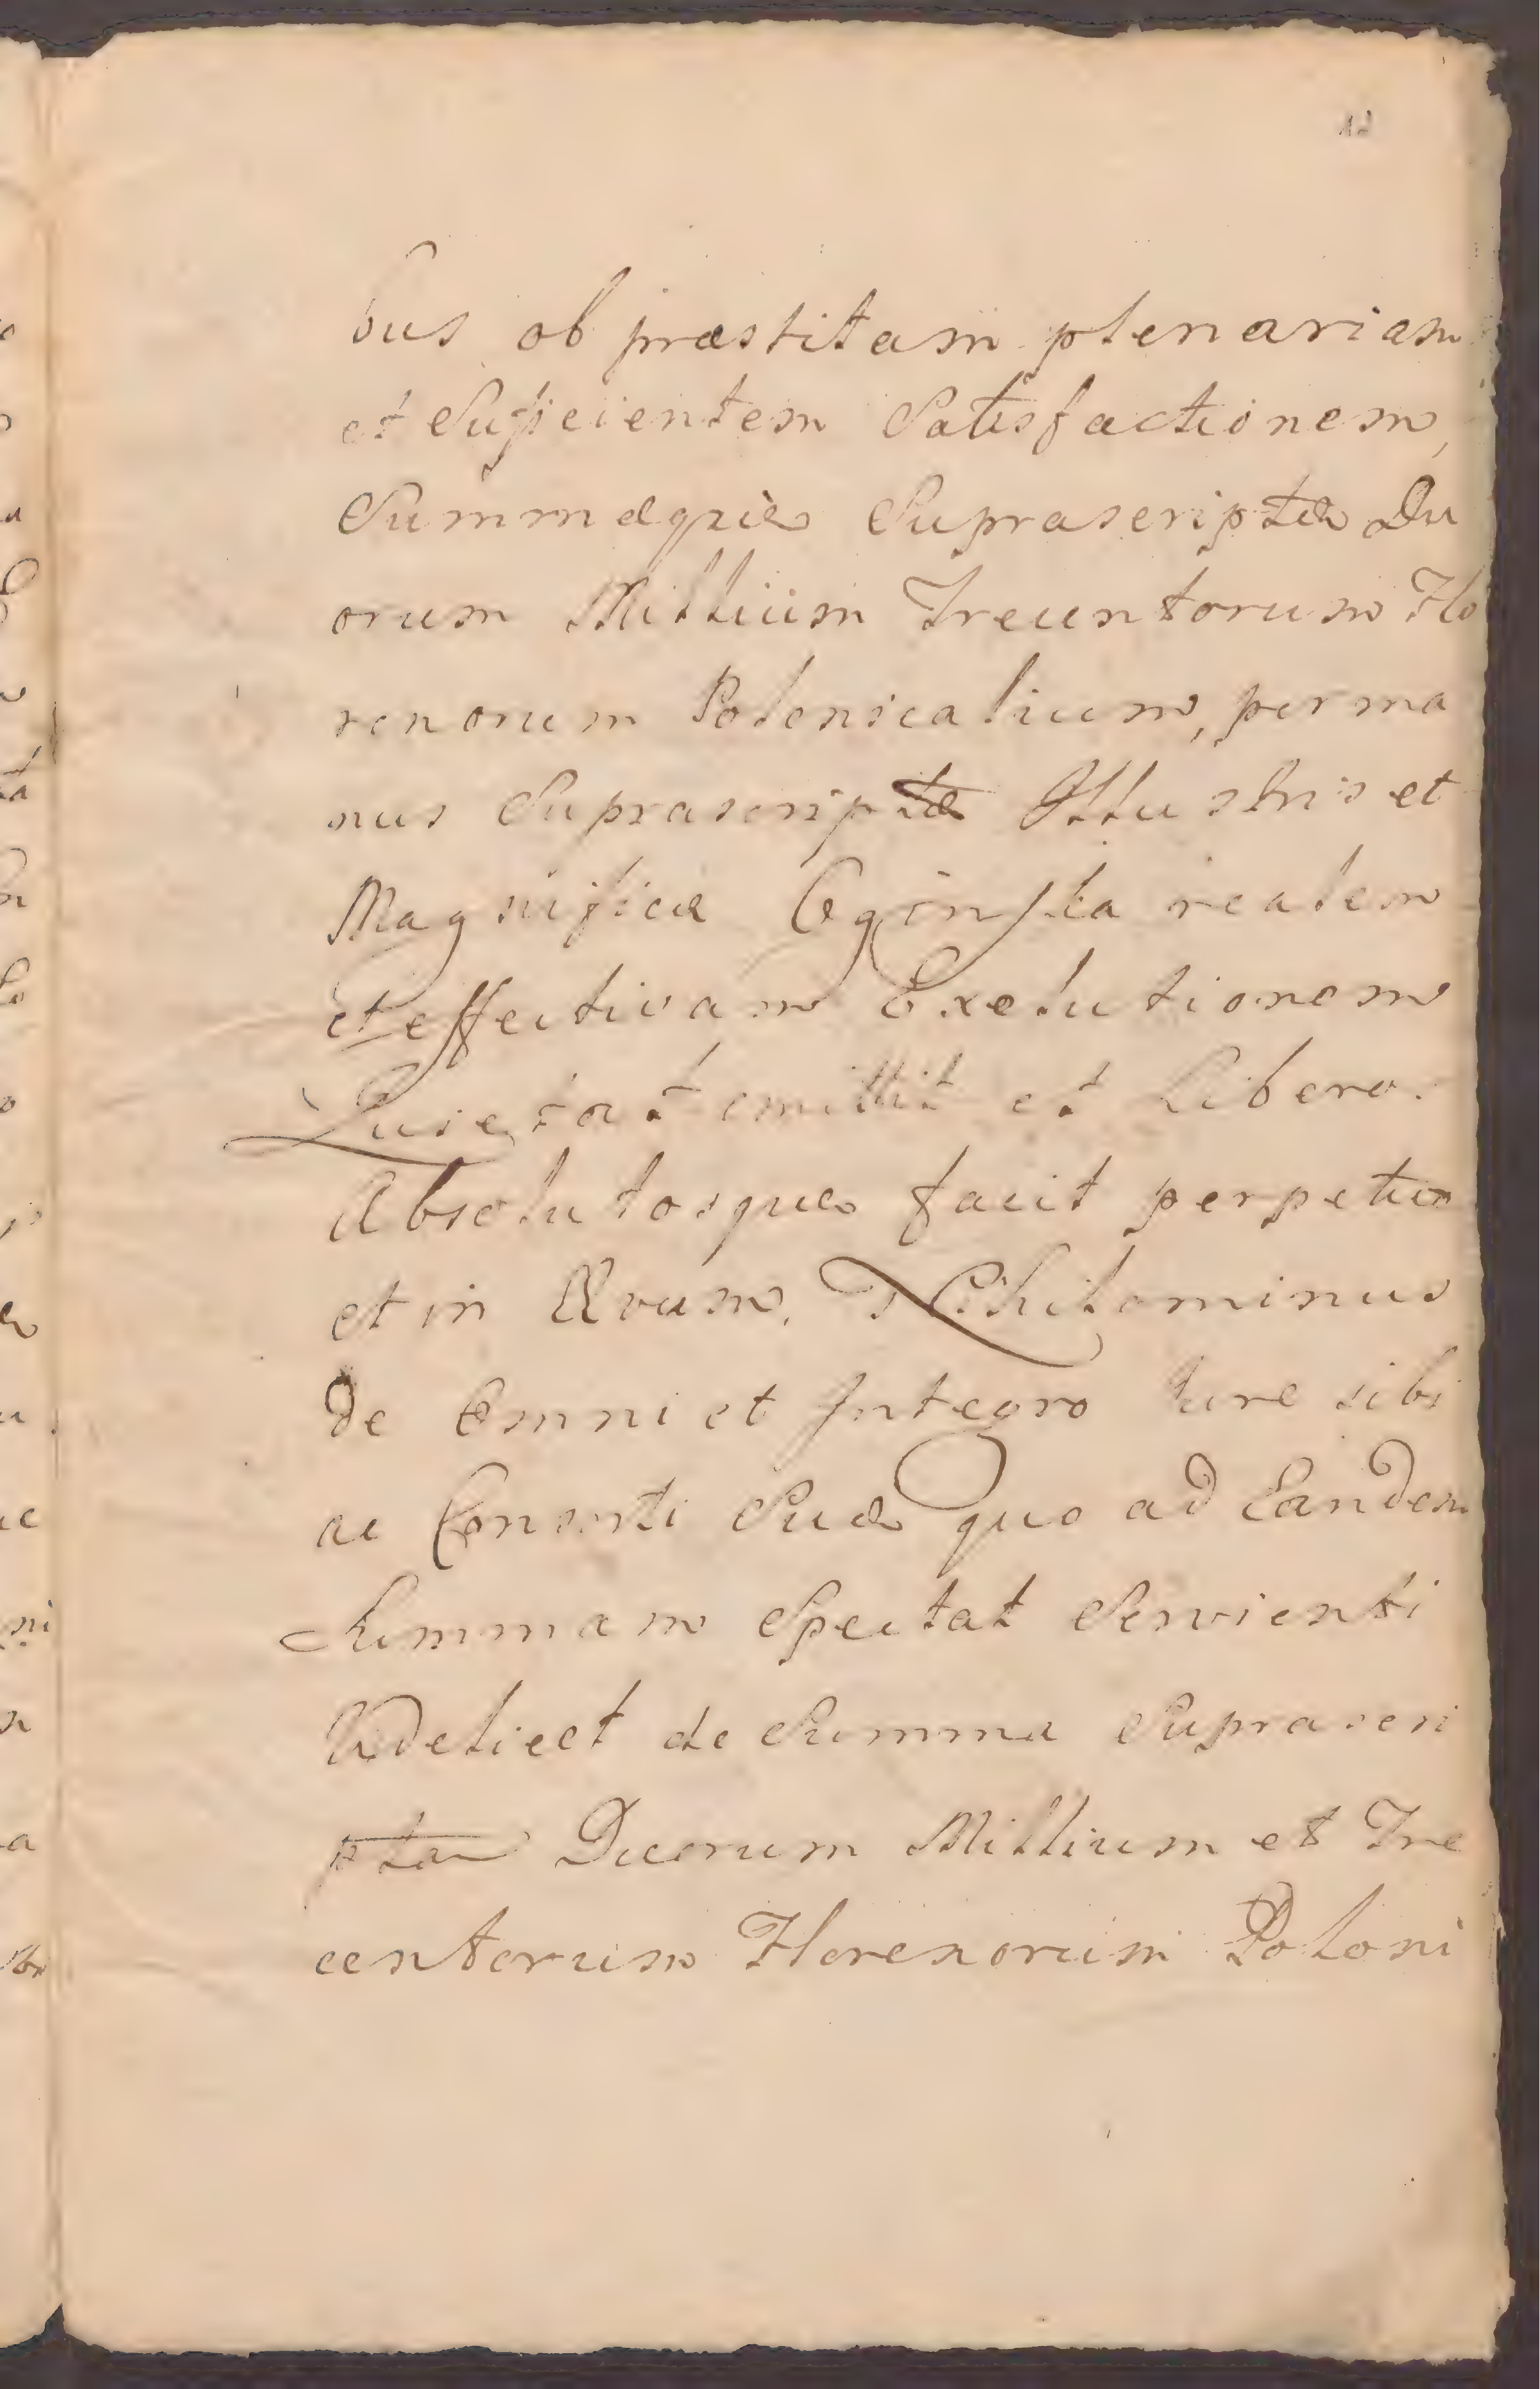 12
bus ob præstitam plenariam
et Sufficientem Satisfactionem,
Summæque Suprascriptæ Du
orum Millium Trecentorum Flo
renorum Polonicalium, per ma
nus Suprascriptæ Illustris et
Magnificæ Ogińska realem
et effectivam Exolutionem
Quietat emittit et Libero.
Absolutosque facit perpetuo
et in Ævum. Nihilominus
de Omni et Integro Iure sibi
ac Consorti Suæ quo ad Eandem
Summam Spectat Servienti
Videlicet de Summa Suprascri
pta Duorum Millium et Tre
centorum Florenorum Poloni